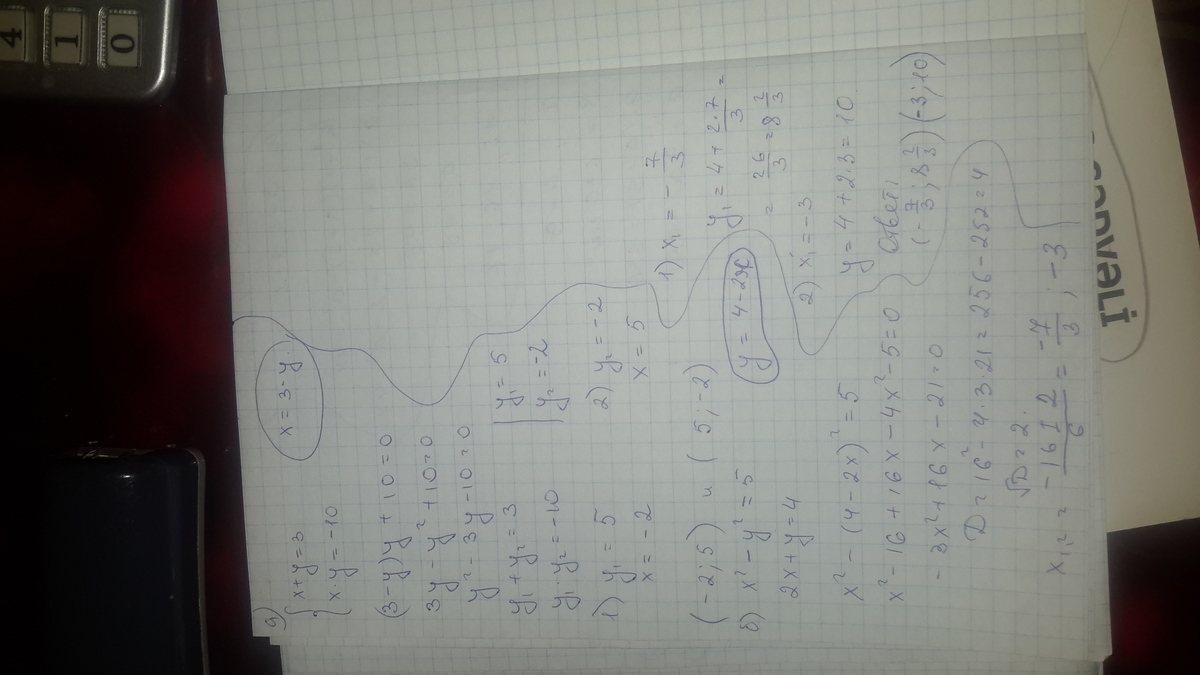 9)
{ x+y=3
x·y=-10
x = 3-y.
(3-y)y+10=0
3y-y²+10=0
y²-3y-10=0
y₁+y₂=3
y₁·y₂=-10
y₁=5
y₂=-2
1) y₁=5
x=-2
2) y₂=-2
x=5
(-2;5) и (5;-2)
б) x²-y²=5
2x+y=4
y=4-2x
x²-(4-2x)²=5
x²-16+16x-4x²-5=0
-3x²+16x-21=0
D=16²-4·3·21=256-252=4
√D=2
x₁,₂= -16±2/6 = -7/3; -3
1) x₁=-7/3
y₁=4+2·7/3=
=26/3=8 2/3
2) x₁=-3
y=4+2·3=10
Ответ:
(-7/3; 8 2/3) (-3;10)
4
1
0